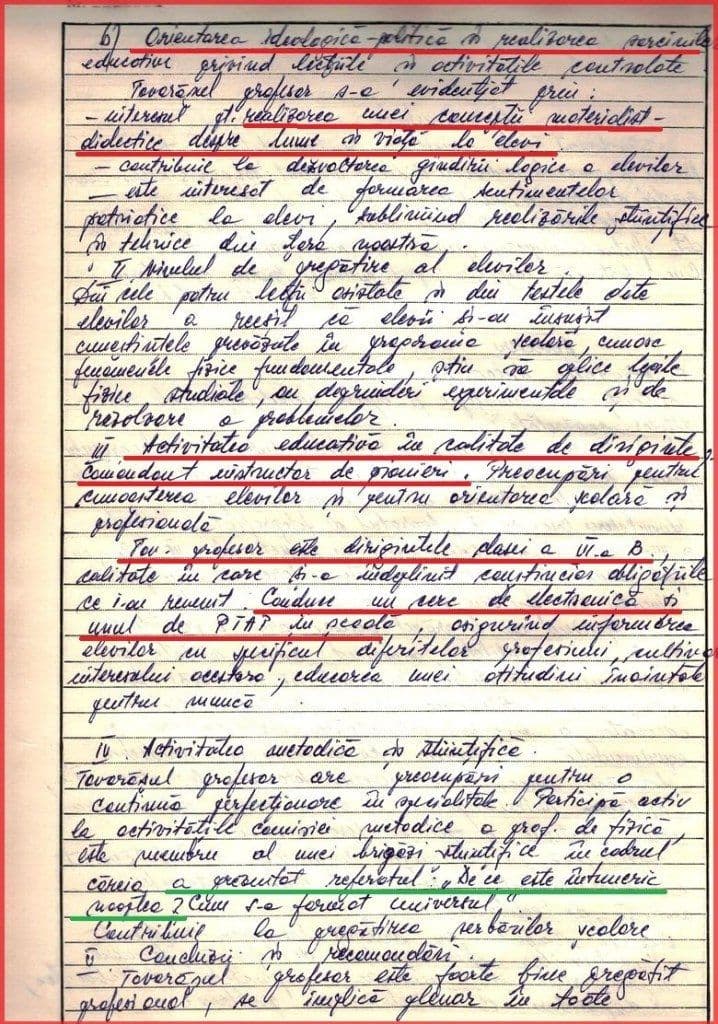 b) Orientarea ideologică-politică în realizarea sarcinilor
educative privind lecțiile și activitățile controlate
Tovarășul profesor s-a evidențiat prin:
- interesul pt. realizarea unei concepții materialist-
didectice despre lume și viață la elevi
- contribuie la dezvoltarea gîndirii logice a elevilor
- este interesat de formarea sentimentelor
patriotice la elevi, subliniind realizările științifice
și tehnice din țara noastră.
II Nivelul de pregătire al elevilor
Din cele patru lecții asistate și din testele date
elevilor a reeșit că elevii și-au însușit
cunoștințele prevăzute în programa școlară, cunosc
fenomenele fizice fundamentale, știu să aplice legile
fizice studiate, au deprinderi experimentale și de
rezolvare a problemelor.
III Activitatea educativă în calitate de diriginte,
Comandant instructor de pionieri. Preocupări pentru
cunoașterea elevilor și pentru orientarea școlară și
profesională
Tov. profesor este dirigintele clasei a VII-a B,
calitate în care și-a îndeplinit conștiincios obligațiile
ce i-au revenit. Conduce un cerc de electronică și
unul de PTAP în școală, asigurînd informarea
elevilor cu specificul diferitelor profesiuni, cultivarea
interesului acestora, educarea unei atitudini înaintate
pentru muncă
IV. Activitatea metodică și științifică.
Tovarășul profesor are preocupări pentru o
continuă perfecționare în specialitate. Participă activ
la activitățile comisiei metodice a prof. de fizică,
este membru al unei brigăzi științifice în cadrul
căreia a prezentat referatul: „De ce este întuneric
noaptea? Cum s-a format universul".
Contribuie la pregătirea serbărilor școlare.
V Concluzii și recomandări.
- Tovarășul profesor este foarte bine pregătit
profesional, se implică plenar în toate